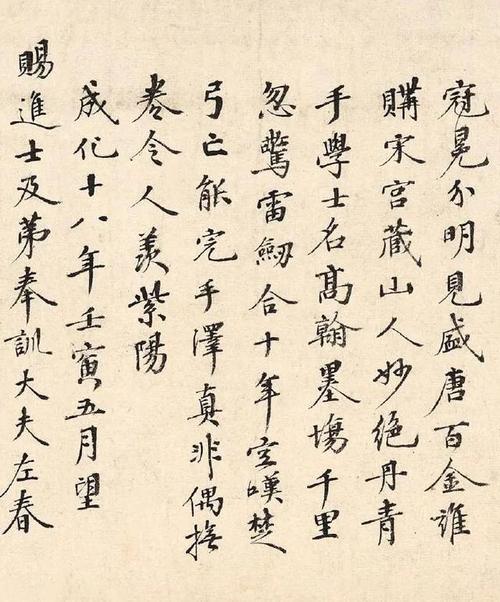 冠冕分明見盛唐百金誰
購宋宮藏山人妙絕丹青
手學士名高翰墨場千里
忽驚雷劒合十年空嘆楚
弓亡能完手澤真非偶撫
卷令人羨紫陽
成化十八年壬寅五月望
賜進士及第奉訓大夫左春